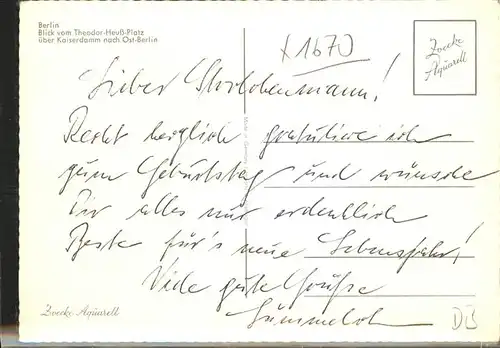 Berlin
Blick vom Theodor-Heuß-Platz
über Kaiserdamm nach Ost-Berlin
x1670
Zvecke
Aquarell
Lieber
Recht herzlich gratuliere ich
zum Geburtstag und wünsche
Dir alles nur erdenklich
Beste für's neue Lebensjahr!
Viele gute Grüße
Zvecke Aquarell
DB